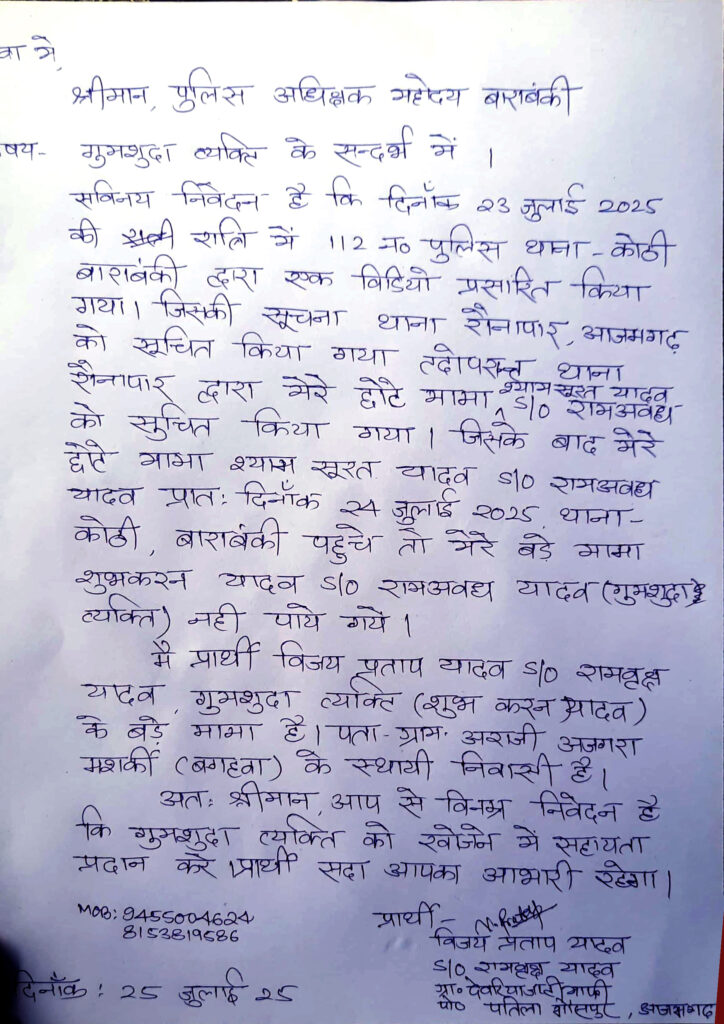 वा मे,
श्रीमान, पुलिस अधिक्षक महोदय बाराबंकी
षय- गुमशुदा व्यक्ति के सन्दर्भ में ।
सविनय निवेदन है कि दिनाँक 23 जुलाई 2025
की रात्रि में 112 न० पुलिस थाना - कोठी
बाराबंकी द्वारा एक विडियो प्रसारित किया
गया। जिसकी सूचना थाना रौनापार, आजमगढ़
को सूचित किया गया तदोपरान्त थाना
रौनापार द्वारा मेरे छोटे मामा श्याम सूरत यादव S/O रामअवध
को सुचित किया गया । जिसके बाद मेरे
छोटे मामा श्याम सूरत यादव S/O रामअवध
यादव प्रातः दिनाँक 24 जुलाई 2025, थाना-
कोठी, बाराबंकी पहुचे तो मेरे बड़े मामा
शुभकरन यादव S/O रामअवध यादव (गुमशुदा
व्यक्ति) नही पाये गये ।
मै प्रार्थी विजय प्रताप यादव S/O रामवृक्ष
यादव, गुमशुदा व्यक्ति (शुभ करन यादव)
के बड़े मामा है। पता-ग्राम- अराजी अजगरा
मशर्की (बगहवा) के स्थायी निवासी है।
अतः श्रीमान, आप से विनम्र निवेदन है
कि गुमशुदा व्यक्ति को खोजने में सहायता
प्रदान करे ।प्रार्थी सदा आपका आभारी रहेगा।
MOB: 9455004624
8153819586
प्रार्थी -
विजय प्रताप यादव
S/O रामवृक्ष यादव
ग्रा०
पो० पतिला गौसपुर, आजमगढ़
दिनाँक : 25 जुलाई 25